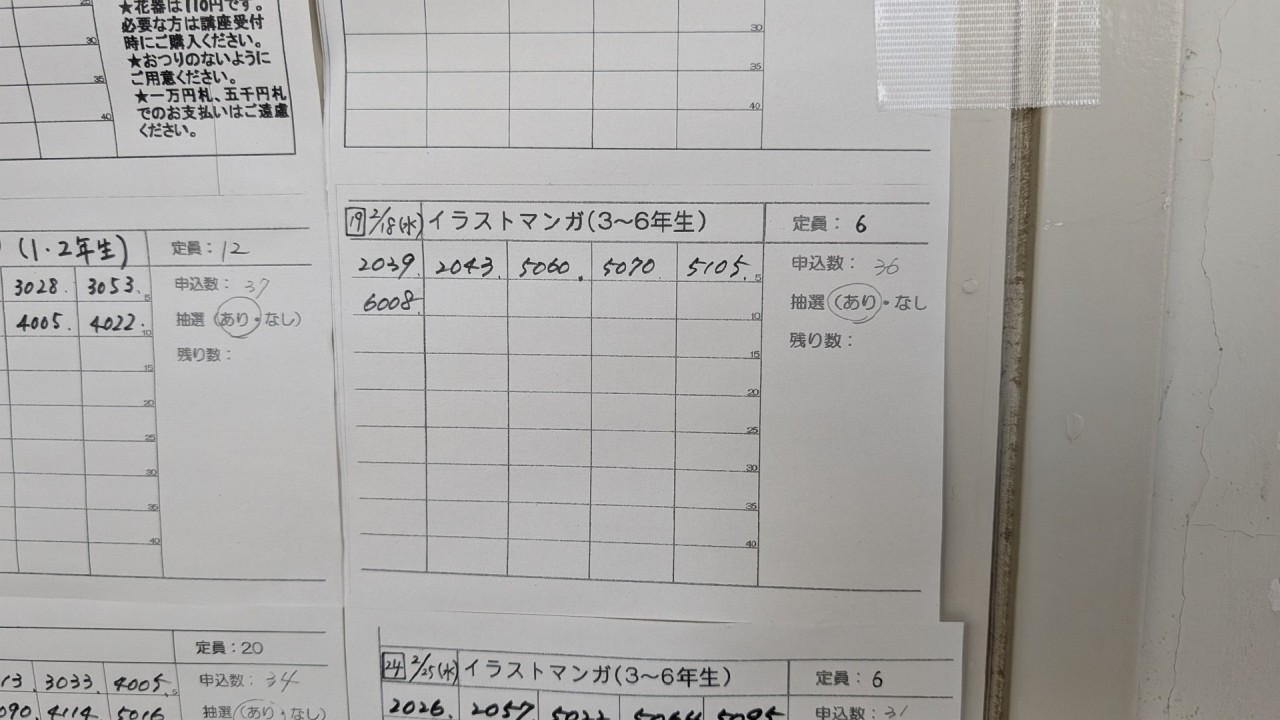 ★花器は110円です。
必要な方は講座受付
時にご購入ください。
★おつりのないように
ご用意ください。
★一万円札、五千円札
でのお支払いはご遠慮
ください。
30
35
40
30
35
40
(1・2年生)
定員：12
3028. 3053. 5
申込数：37
4005. 4022. 10
抽選 (あり・なし)
残り数：
15
20
25
30
35
40
19 2/18(水) イラストマンガ(3～6年生)
定員： 6
2039. 2043. 5060. 5070. 5105. 5
申込数： 36
6008. 10
抽選 (あり・なし
残り数：
15
20
25
30
35
40
定員：20
13. 3033. 4005. 5
申込数：34
090. 4114. 5016
抽選 (あり・なし)
24 2/25(水) イラストマンガ(3～6年生)
定員： 6
2026. 2057. 5022. 5064 5095
申込数：31